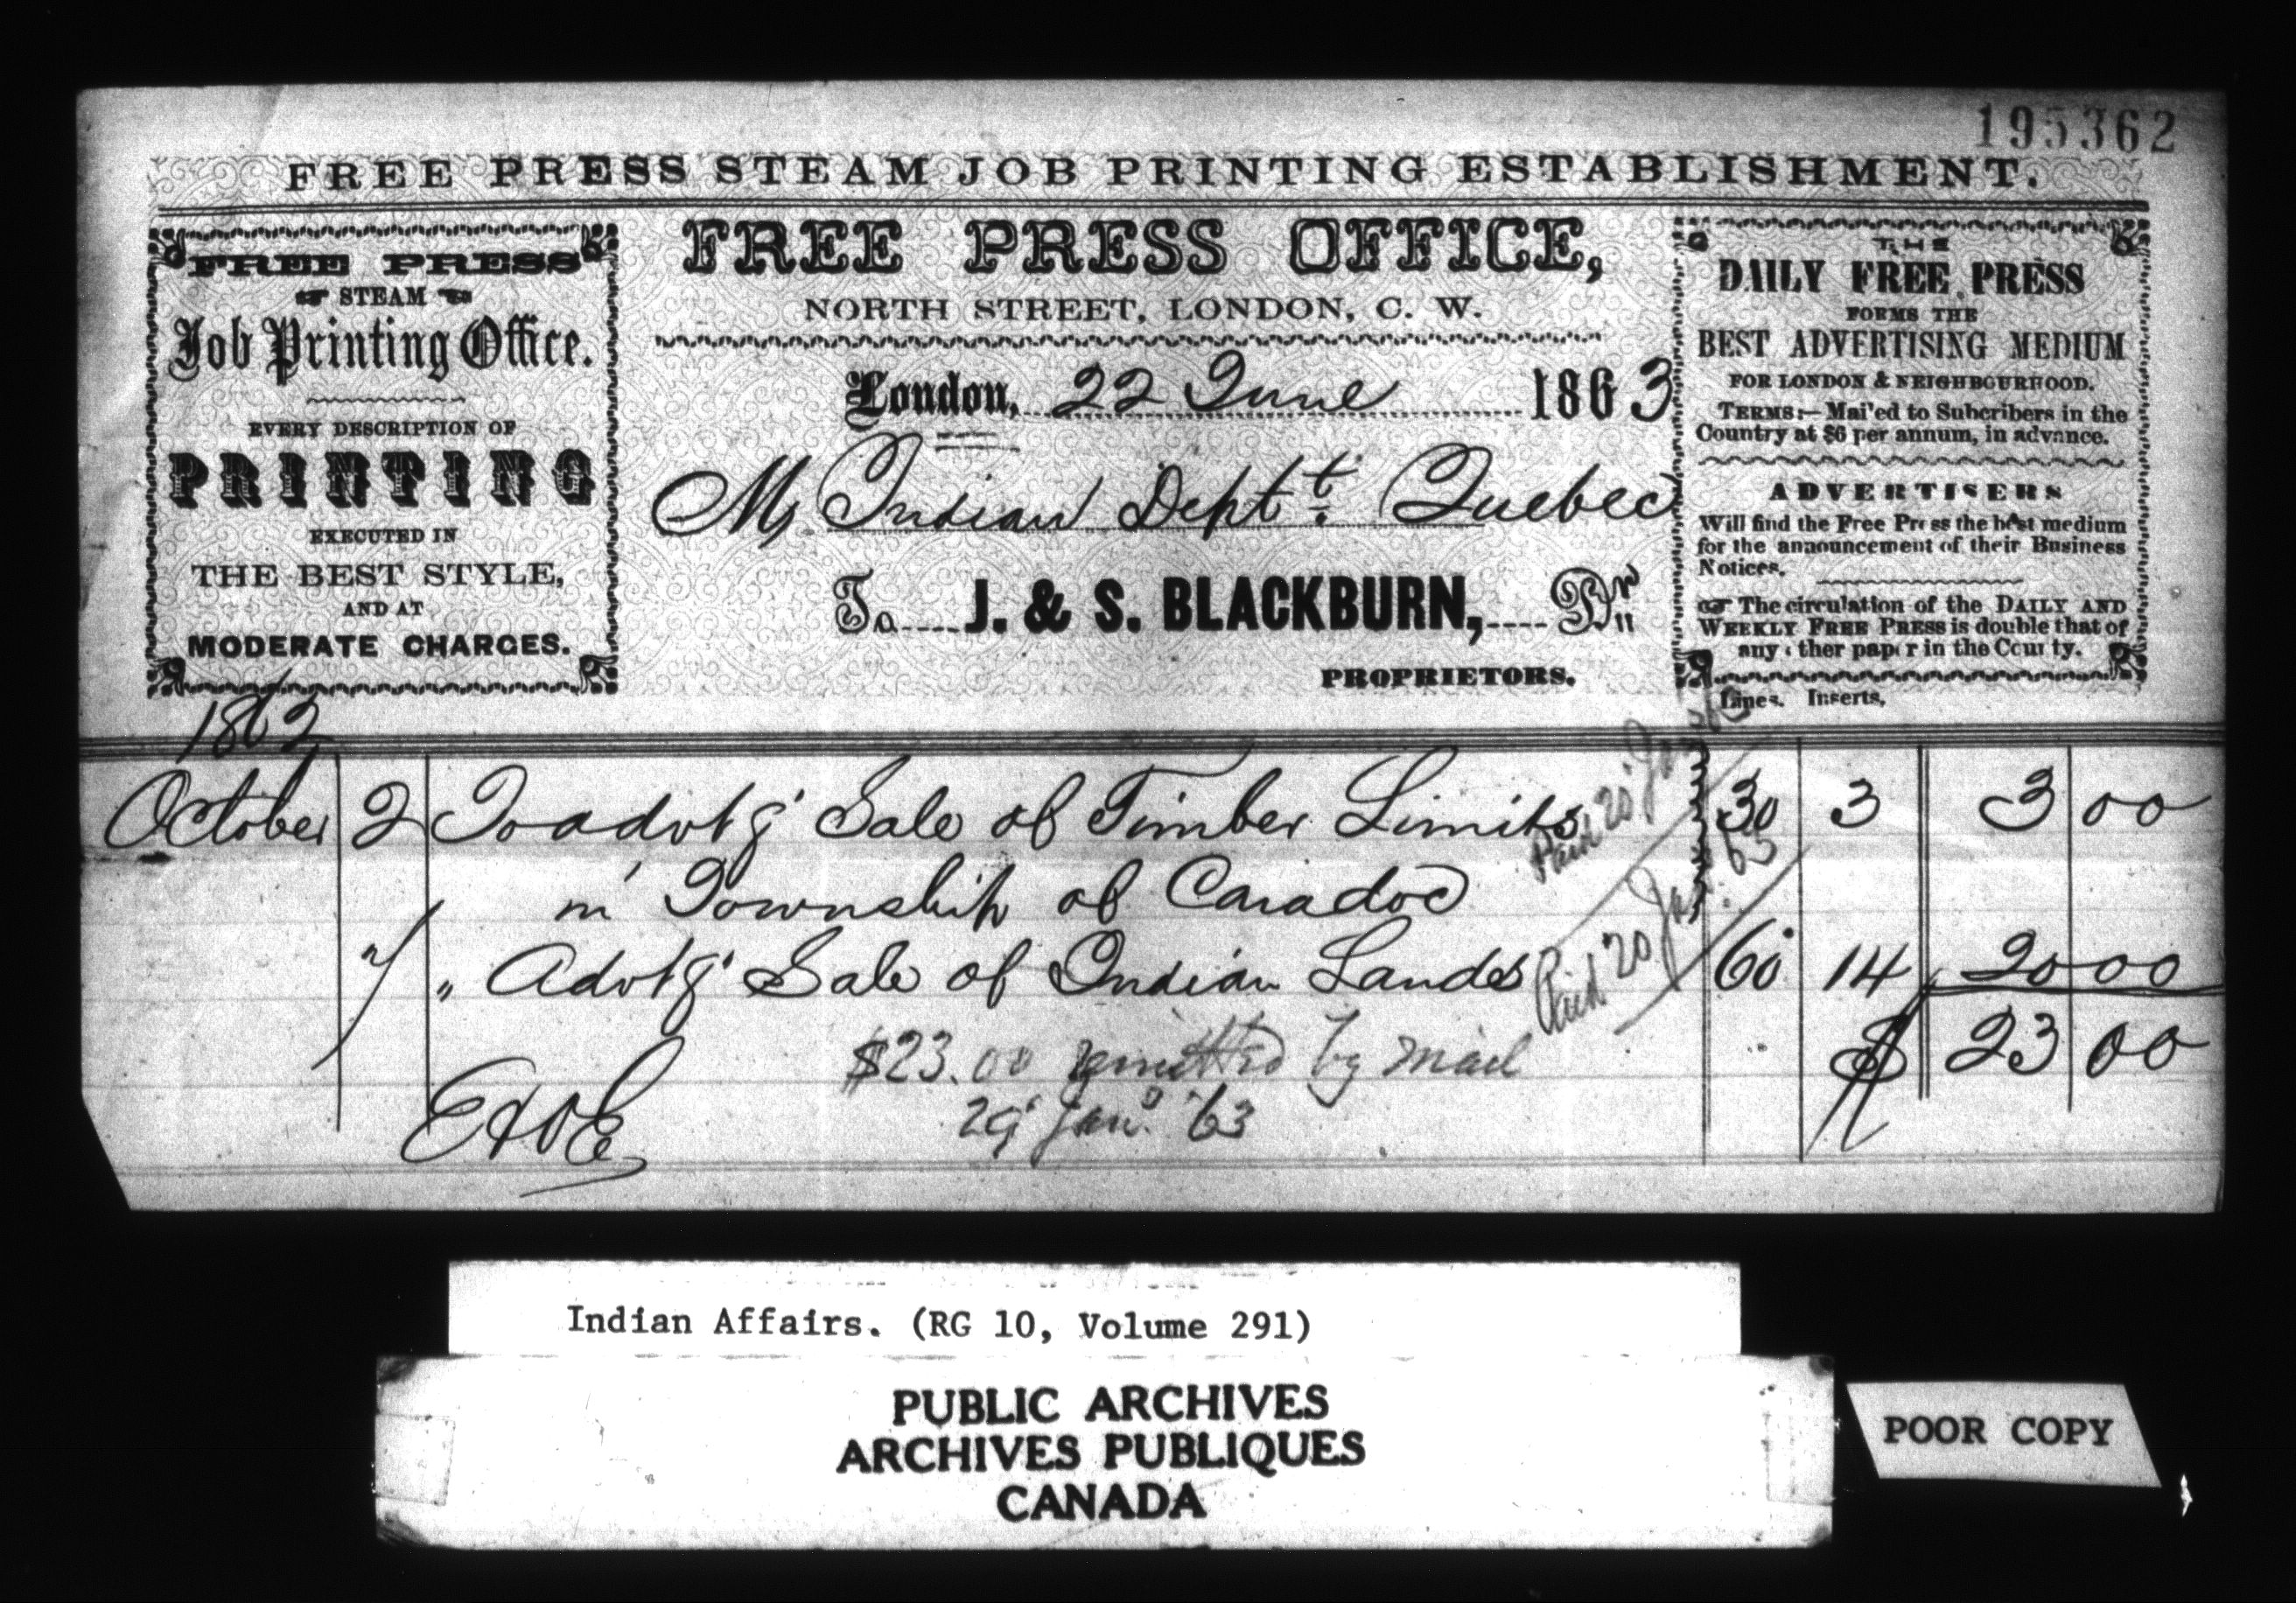 195362
FREE PRESS STEAM JOB PRINTING ESTABLISHMENT.
FREE PRESS
STEAM
Job Printing Office.
EVERY DESCRIPTION OF
PRINTING
EXECUTED IN
THE BEST STYLE,
AND AT
MODERATE CHARGES.
FREE PRESS OFFICE,
NORTH STREET, LONDON, C. W.
London, 22 June 1863
M Indian Deptt. Quebec
To J. & S. BLACKBURN, Dr
PROPRIETORS.
THE
DAILY FREE PRESS
FORMS THE
BEST ADVERTISING MEDIUM
FOR LONDON & NEIGHBOURHOOD.
TERMS:— Mai'ed to Subcribers in the
Country at $6 per annum, in advance.
ADVERTISERS
Will find the Free Press the best medium
for the announcement of their Business
Notices.
The circulation of the DAILY AND
WEEKLY FREE PRESS is double that of
any other paper in the County.
Lines. Inserts,
1862
October 2 To advtg Sale of Timber Limits 30 3 3 00
in Township of Caradoc
7 " Advtg Sale of Indian Lands 60 14 20 00
$ 23 00
Paid 20 Jan
Paid 20 Jan. 63
$23.00 remitted by mail
29 Jany. '63
E & O E
Indian Affairs. (RG 10, Volume 291)
PUBLIC ARCHIVES
ARCHIVES PUBLIQUES
CANADA
POOR COPY